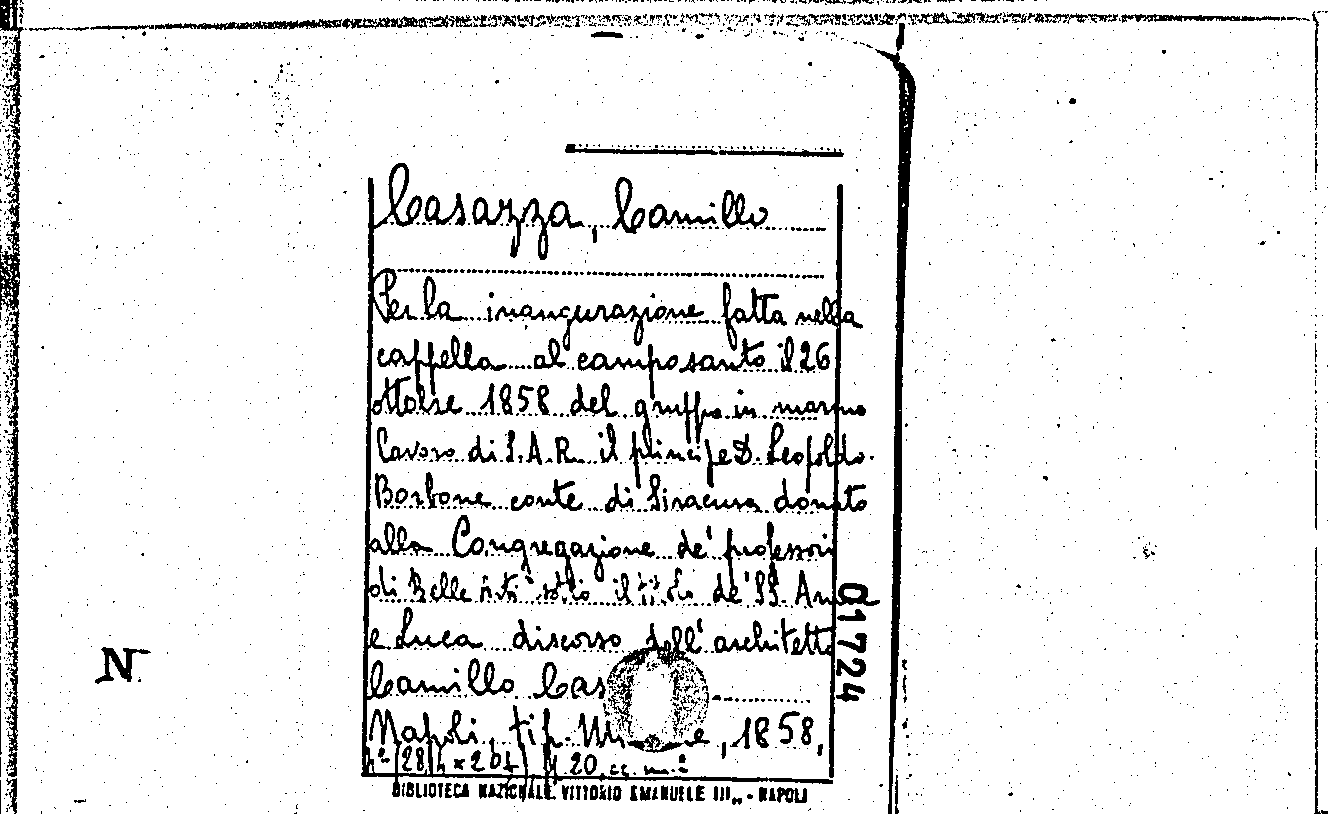 Casazza, Camillo
Per la inaugurazione fatta nella
cappella al camposanto il 26
ottobre 1858 del gruppo in marmo
lavoro di S.A.R. il principe D. Leopoldo
Borbone conte di Siracusa donato
alla Congregazione de' professori
di Belle Arti sotto il titolo de' SS. An
e Luca discorso dell' architetto
Camillo Cas
Napoli, tip. , 1858,
20 cc. m.
BIBLIOTECA NAZIONALE VITTORIO EMANUELE III,, - NAPOLI
01724
N